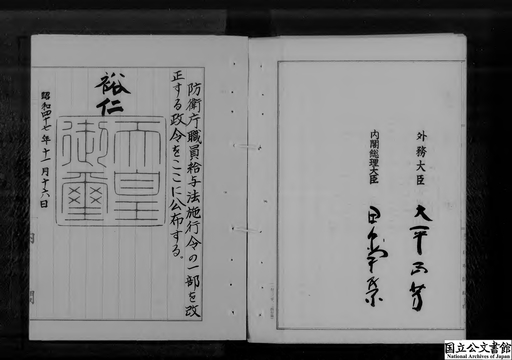 外務大臣 大平正芳
内閣総理大臣 田中角栄
防衛庁職員給与法施行令の一部を改
正する政令をここに公布する。
裕仁
天皇
御璽
昭和四十七年十一月十六日
内閣
国立公文書館
National Archives of Japan